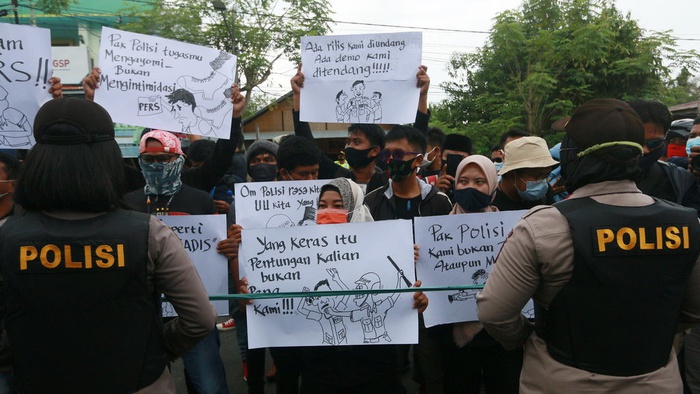 am
ERS!!
GSP
Pak Polisi tugasmu
Mengayomi...
Bukan
Mengintimidasi
PERS
Ada rilis kami diundang
Ada demo kami
ditendang!!!!!
Om Polisi
UU Kita
Yang Keras Itu
Pentungan Kalian
bukan
Kami!!!
perti
ADIS
Pak Polisi
Kami bukan
Ataupun
POLISI
POLISI